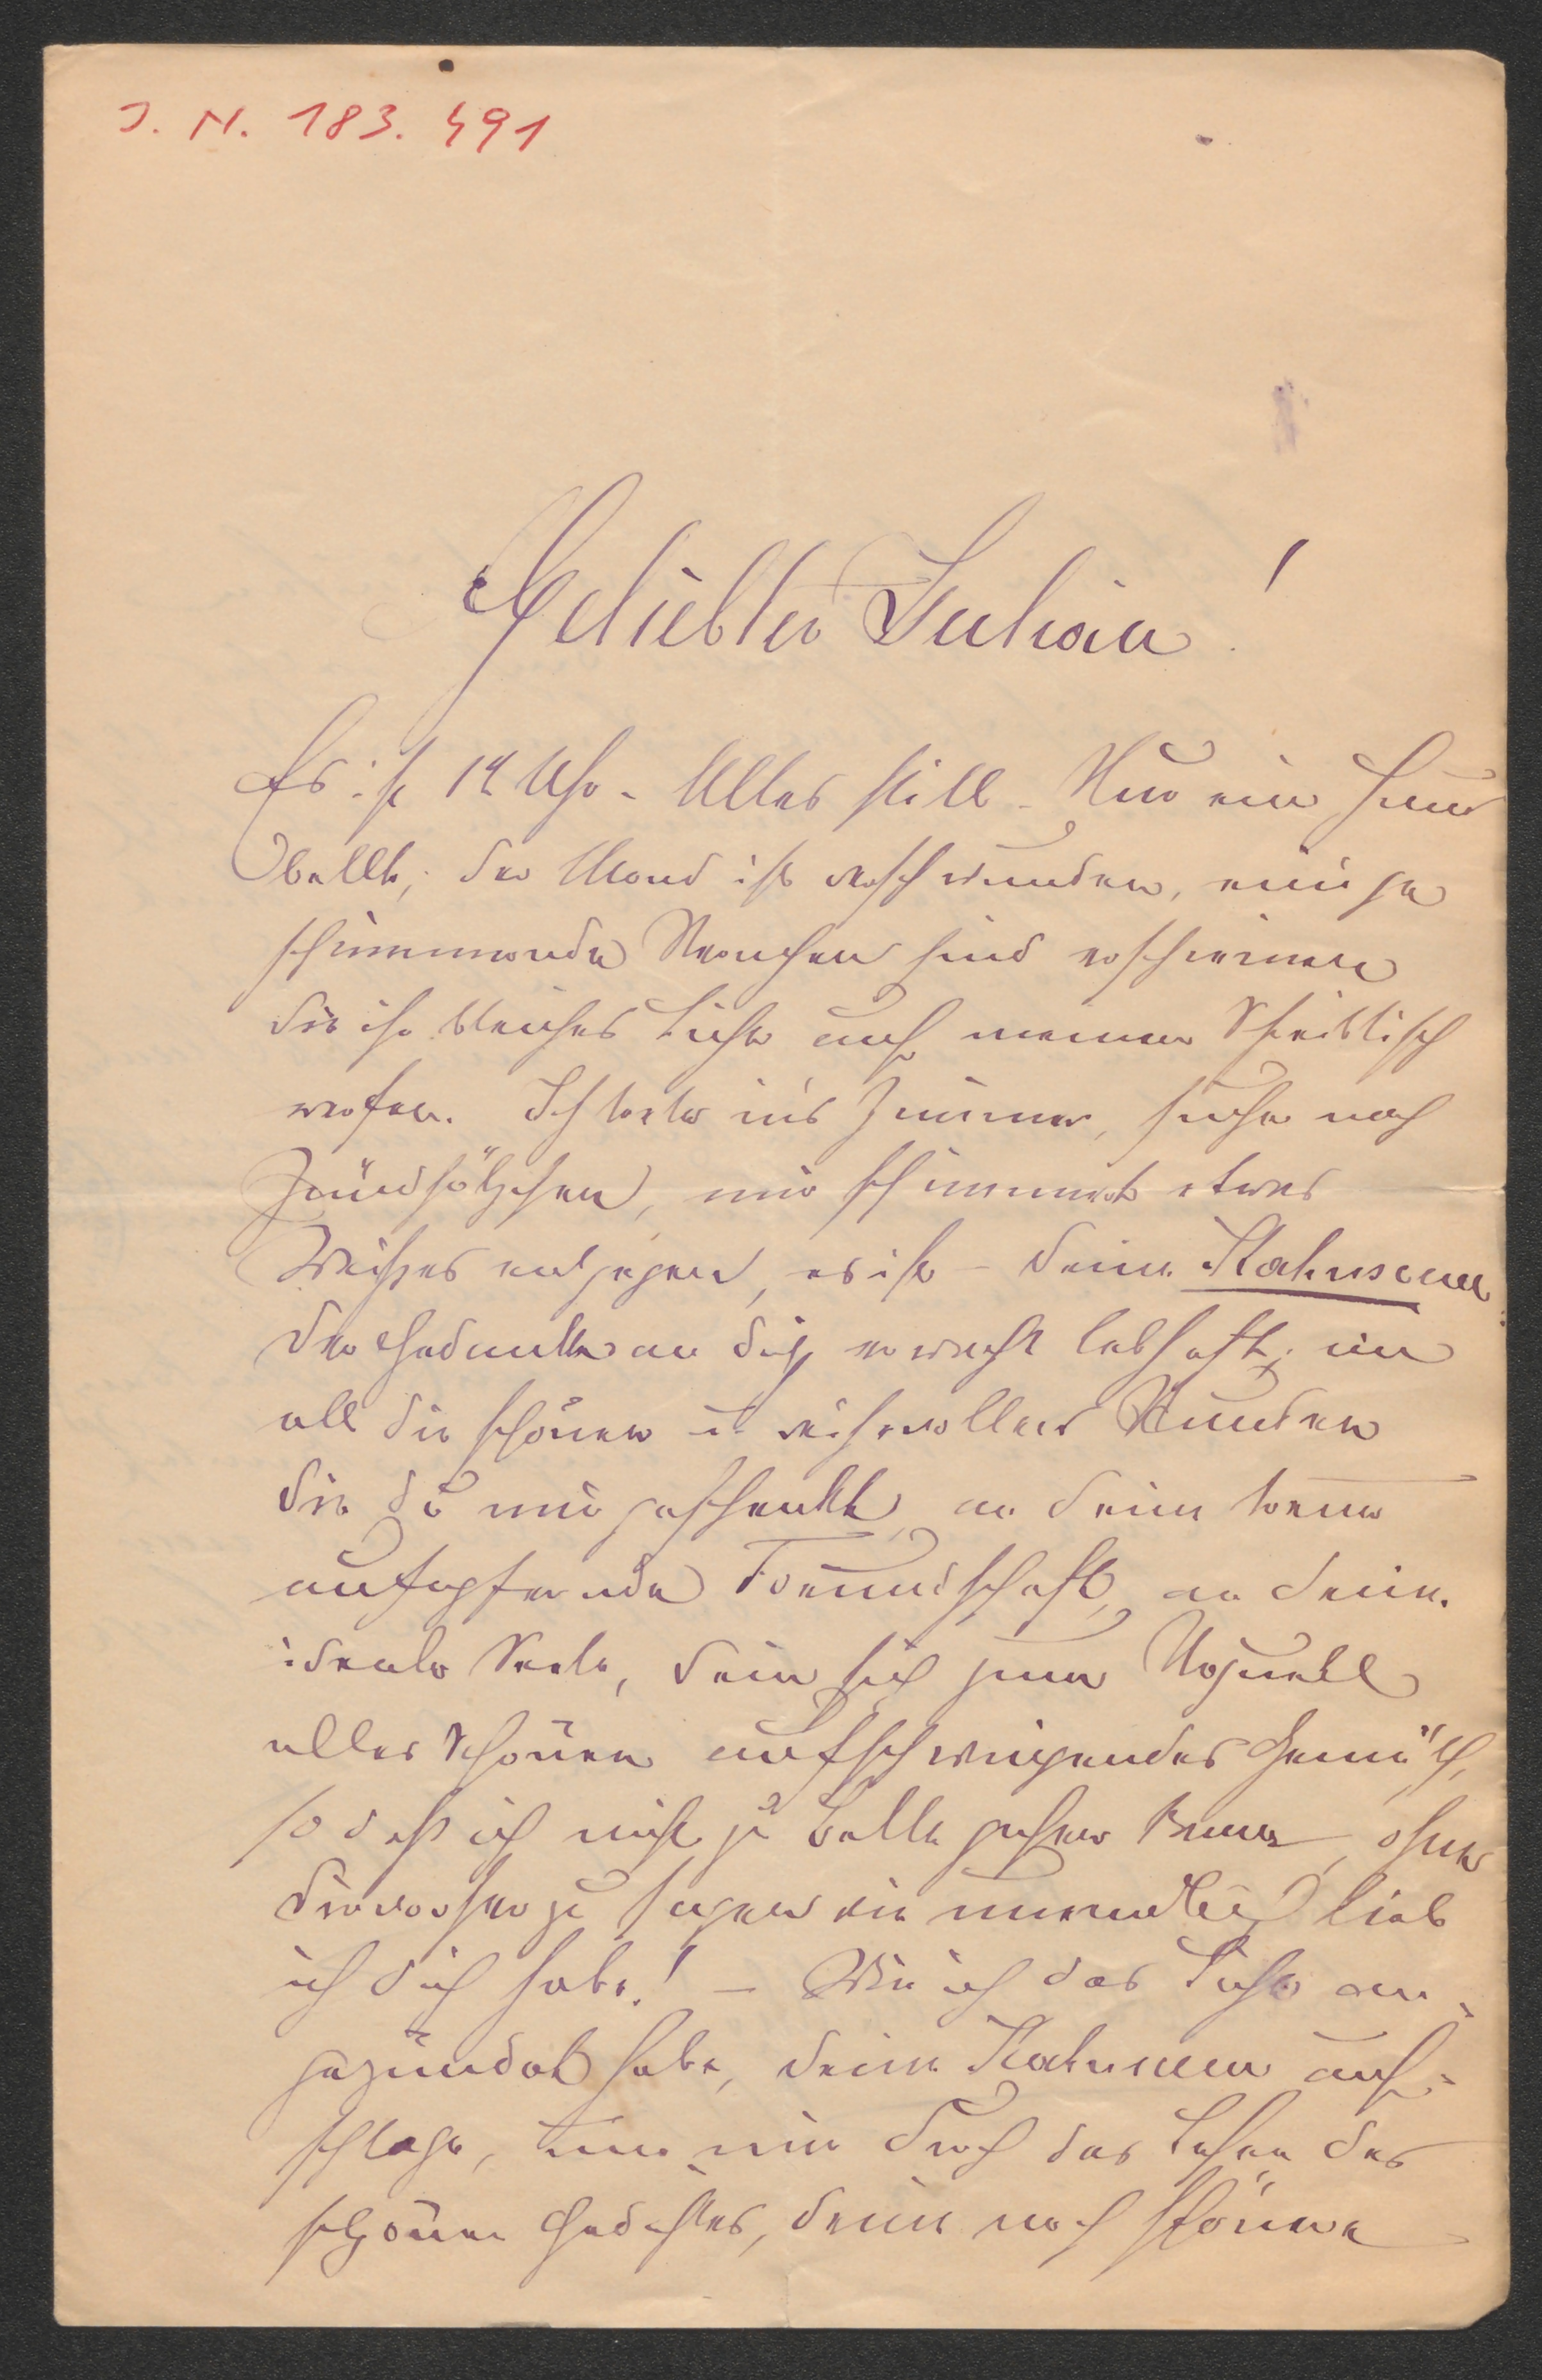 J. N. 183.491
Geliebter Julian!
Es ist 12 Uhr. Alles still. Nur ein Hund
bellt, der Mond ist verschwunden, einige
schimmernde Sternchen sind erschienen
die ihr bleiches Licht auf meinen Schreibtisch
werfen. Ich trete in's Zimmer, suche nach
Zündhölzchen, mir schimmert etwas
Weißes entgegen, es ist – deine
der Gedanke an dich erwacht lebhaft, an
all die schönen u weihevollen Stunden
die du mir geschenkt, an deine treue
aufopfernde Freundschaft, an deine
ideale Seele, dein sich zum Urquell
alles Schönen aufschwingendes Gemüth,
so daß ich nicht zu Bette gehen kann, ohne
dir vorher zu sagen wie unendlich lieb
ich dich habe! – Wie ich das Licht an-
gezündet habe, deine auf-
schlage, um mir durch das Lesen des
schönen Gedichtes, deine noch schönere